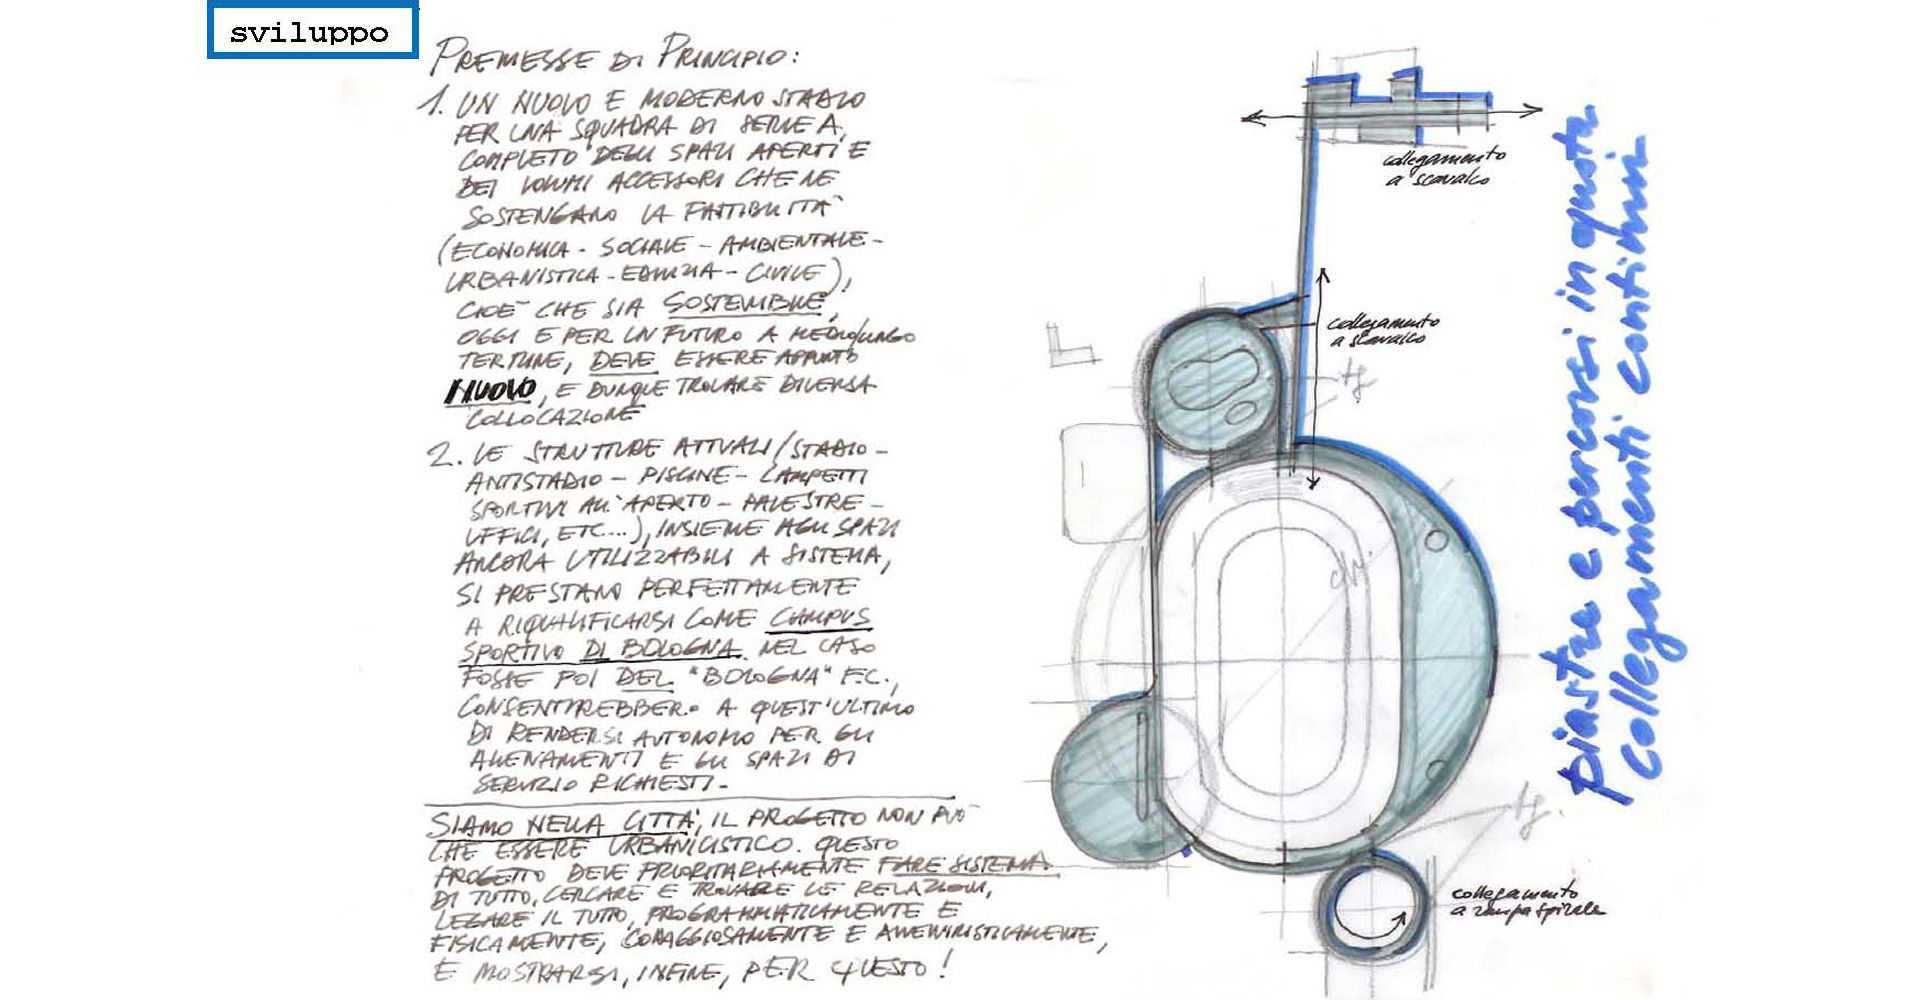 sviluppo
PREMESSE DI PRINCIPIO:
1. UN NUOVO E MODERNO STADIO
PER UNA SQUADRA DI SERIE A,
COMPLETO DEGLI SPAZI APERTI E
DEI VOLUMI ACCESSORI CHE NE
SOSTENGANO LA FATTIBILITÀ
(ECONOMICA - SOCIALE - AMBIENTALE -
URBANISTICA - EDILIZIA - CIVILE),
CIOÈ CHE SIA SOSTENIBILE,
OGGI E PER UN FUTURO A MEDIO/LUNGO
TERMINE, DEVE ESSERE APPUNTO
NUOVO, E DUNQUE TROVARE DIVERSA
COLLOCAZIONE
2. LE STRUTTURE ATTUALI (STADIO -
ANTISTADIO - PISCINE - CAMPETTI
SPORTIVI ALL'APERTO - PALESTRE -
UFFICI, ETC...), INSIEME AGLI SPAZI
ANCORA UTILIZZABILI A SISTEMA,
SI PRESTANO PERFETTAMENTE
A RIQUALIFICARSI COME CAMPUS
SPORTIVO DI BOLOGNA. NEL CASO
FOSSE POI DEL "BOLOGNA" F.C.,
CONSENTIREBBERO A QUEST'ULTIMO
DI RENDERSI AUTONOMO PER GLI
ALLENAMENTI E GLI SPAZI DI
SERVIZIO RICHIESTI.
SIAMO NELLA CITTÀ, IL PROGETTO NON PUÒ
CHE ESSERE URBANISTICO. QUESTO
PROGETTO DEVE PRIORITARIAMENTE FARE SISTEMA
DI TUTTO, CERCARE E TROVARE LE RELAZIONI,
LEGARE IL TUTTO, PROGRAMMATICAMENTE E
FISICAMENTE, CORAGGIOSAMENTE E AVVENIRISTICAMENTE,
E MOSTRARSI, INFINE, PER QUESTO!
collegamento
a scavalco
collegamento
a scavalco
tg.
tg.
collegamento
a rampa spirale
piastre e percorsi in quota
collegamenti continui